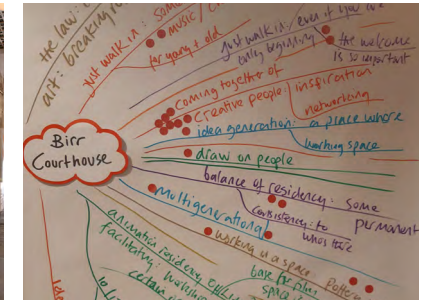 the law:
art: breaking
just walk in: some
music /
for young + old
just walk in: even if you are
only beginning
the welcome
is so important
Coming together of
creative people: inspiration
networking
idea generation: a place where
working space
draw on people
balance of residency: some
permanent
consistency: to
who's there
multigenerational
working in a space: Pottery
animation residency
facilitating: workshop
certain
base for plus
space
Birr
Courthouse